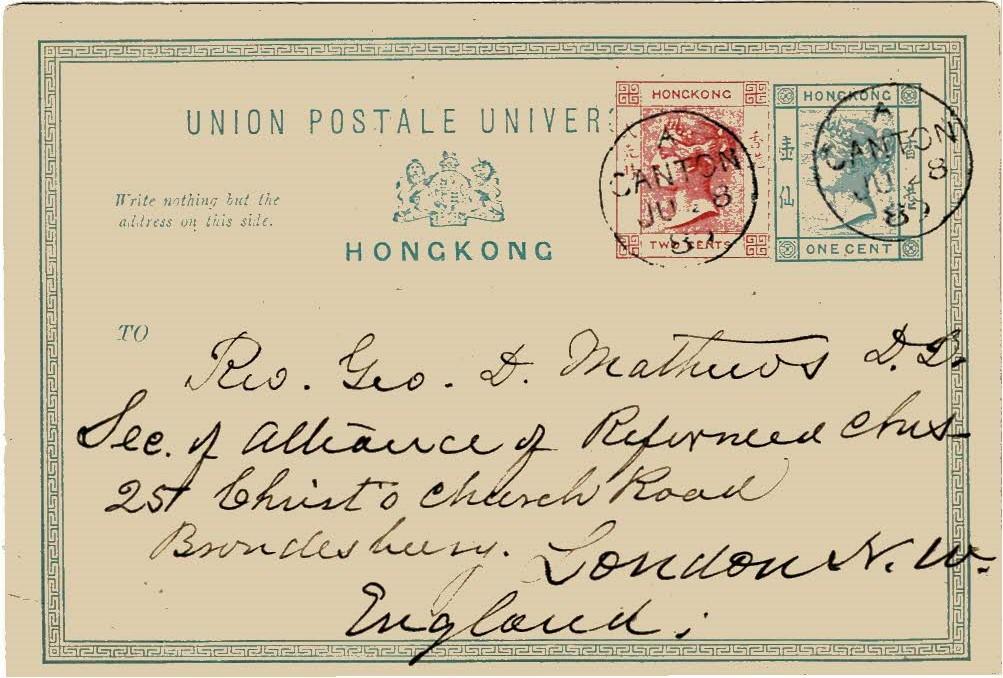 UNION POSTALE UNIVER
HONGKONG
TWO CENTS
HONGKONG
壹仙
香港
ONE CENT
A
CANTON
JU 8
89
A
CANTON
JU 8
89
Write nothing but the
address on this side.
HONGKONG
TO
Rev. Geo. D. Mathews D.D.
Sec. of Alliance of Reformed Chus
25 Christ's Church Road
Brondesbury. London N.W.
England.